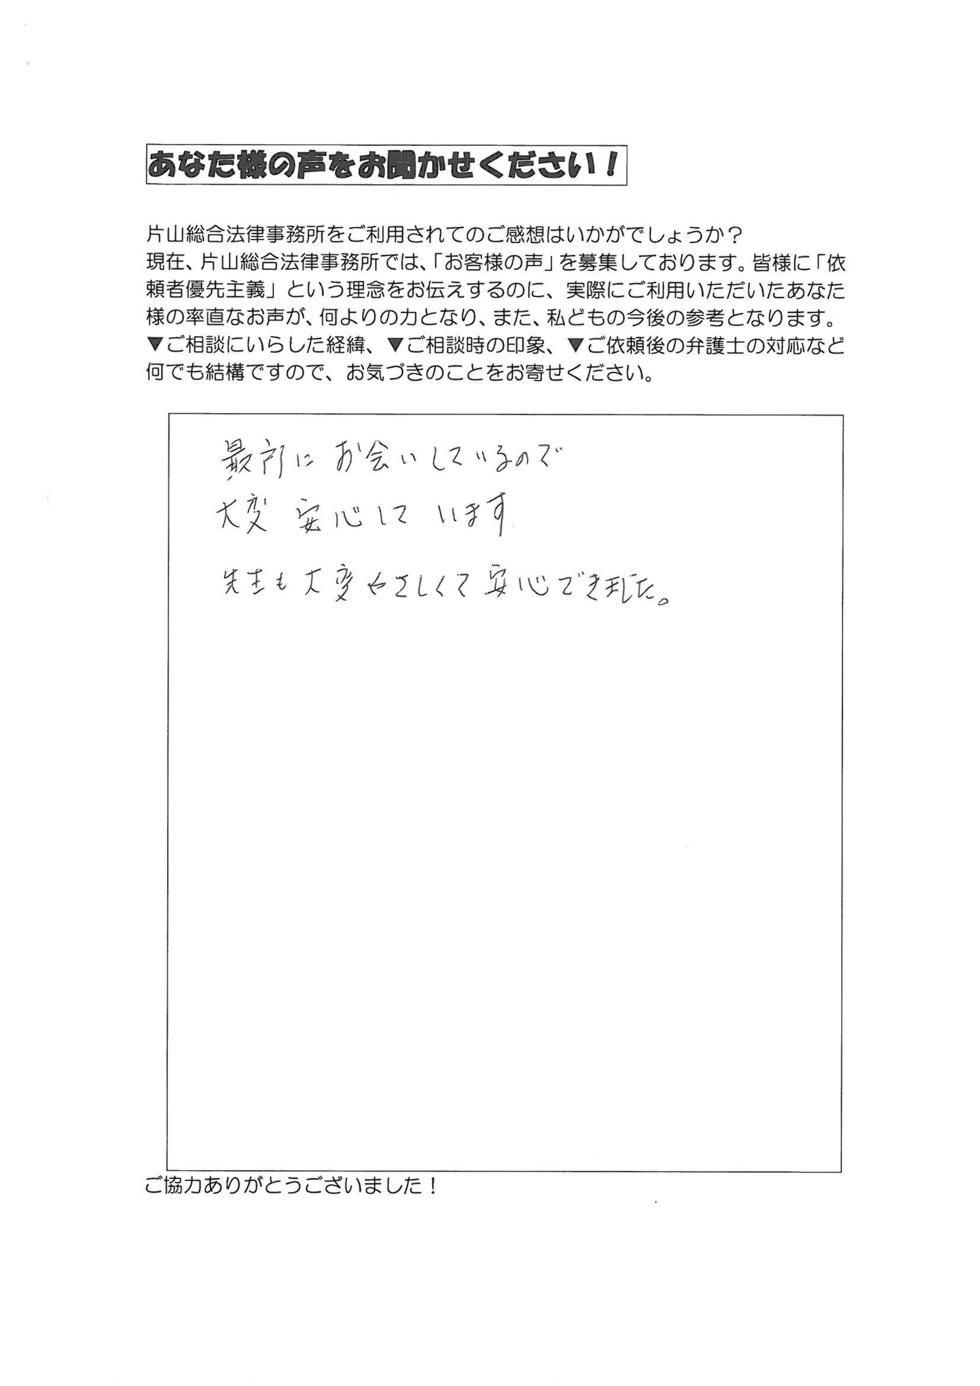 あなた様の声をお聞かせください！
片山総合法律事務所をご利用されてのご感想はいかがでしょうか？
現在、片山総合法律事務所では、「お客様の声」を募集しております。皆様に「依
頼者優先主義」という理念をお伝えするのに、実際にご利用いただいたあなた
様の率直なお声が、何よりの力となり、また、私どもの今後の参考となります。
▼ご相談にいらした経緯、▼ご相談時の印象、▼ご依頼後の弁護士の対応など
何でも結構ですので、お気づきのことをお寄せください。
最初にお会いしているので
大変 安心して います
先生も大変やさしくて安心できました。
ご協力ありがとうございました！